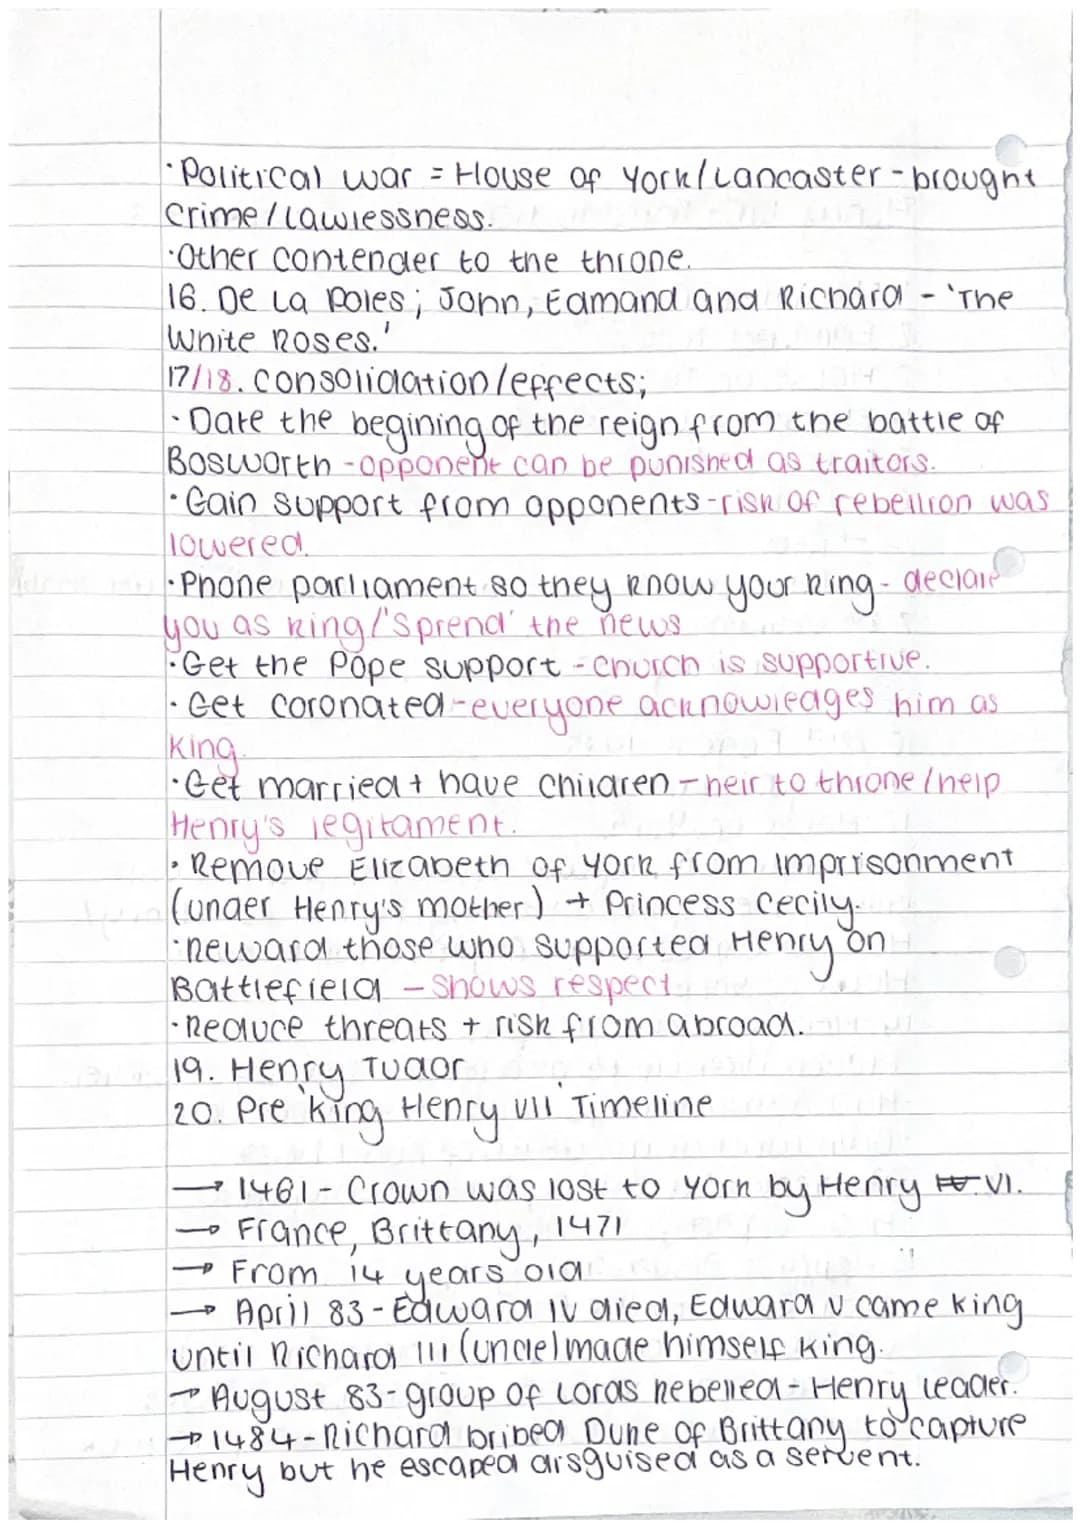 ·Political war = House of York/Lancaster - brought
crime/Lawlessness.
·Other contender to the throne.
16. De La Poles; John, Edmand and Richard - 'The
White Roses.'
17/18. consolidation/effects;
· Date the begining of the reign from the battle of
Bosworth - opponent can be punished as traitors.
·Gain support from opponents - risk of rebellion was
lowered.
·Phone parliament so they know your king - declare
you as king/'Spread' the news
·Get the Pope support - church is supportive.
·Get coronated - everyone acknowledges him as
king.
·Get married + have children - heir to throne/help
Henry's legitament.
·Remove Elizabeth of York from imprisonment
(under Henry's mother) + Princess Cecily.
·Reward those who supported Henry on
Battlefield - shows respect
·Reduce threats + risk from abroad.
19. Henry Tudor
20. Pre king Henry VII Timeline
→ 1461 - Crown was lost to York by Henry VI.
→ France, Brittany, 1471
→ From 14 years old
→ April 83 - Edward IV died, Edward V came king
until Richard III (uncle) made himself king.
→ August 83 - group of Lords Rebelled - Henry leader.
→ 1484 - Richard bribed Duke of Brittany to capture
Henry but he escaped disguised as a servent.